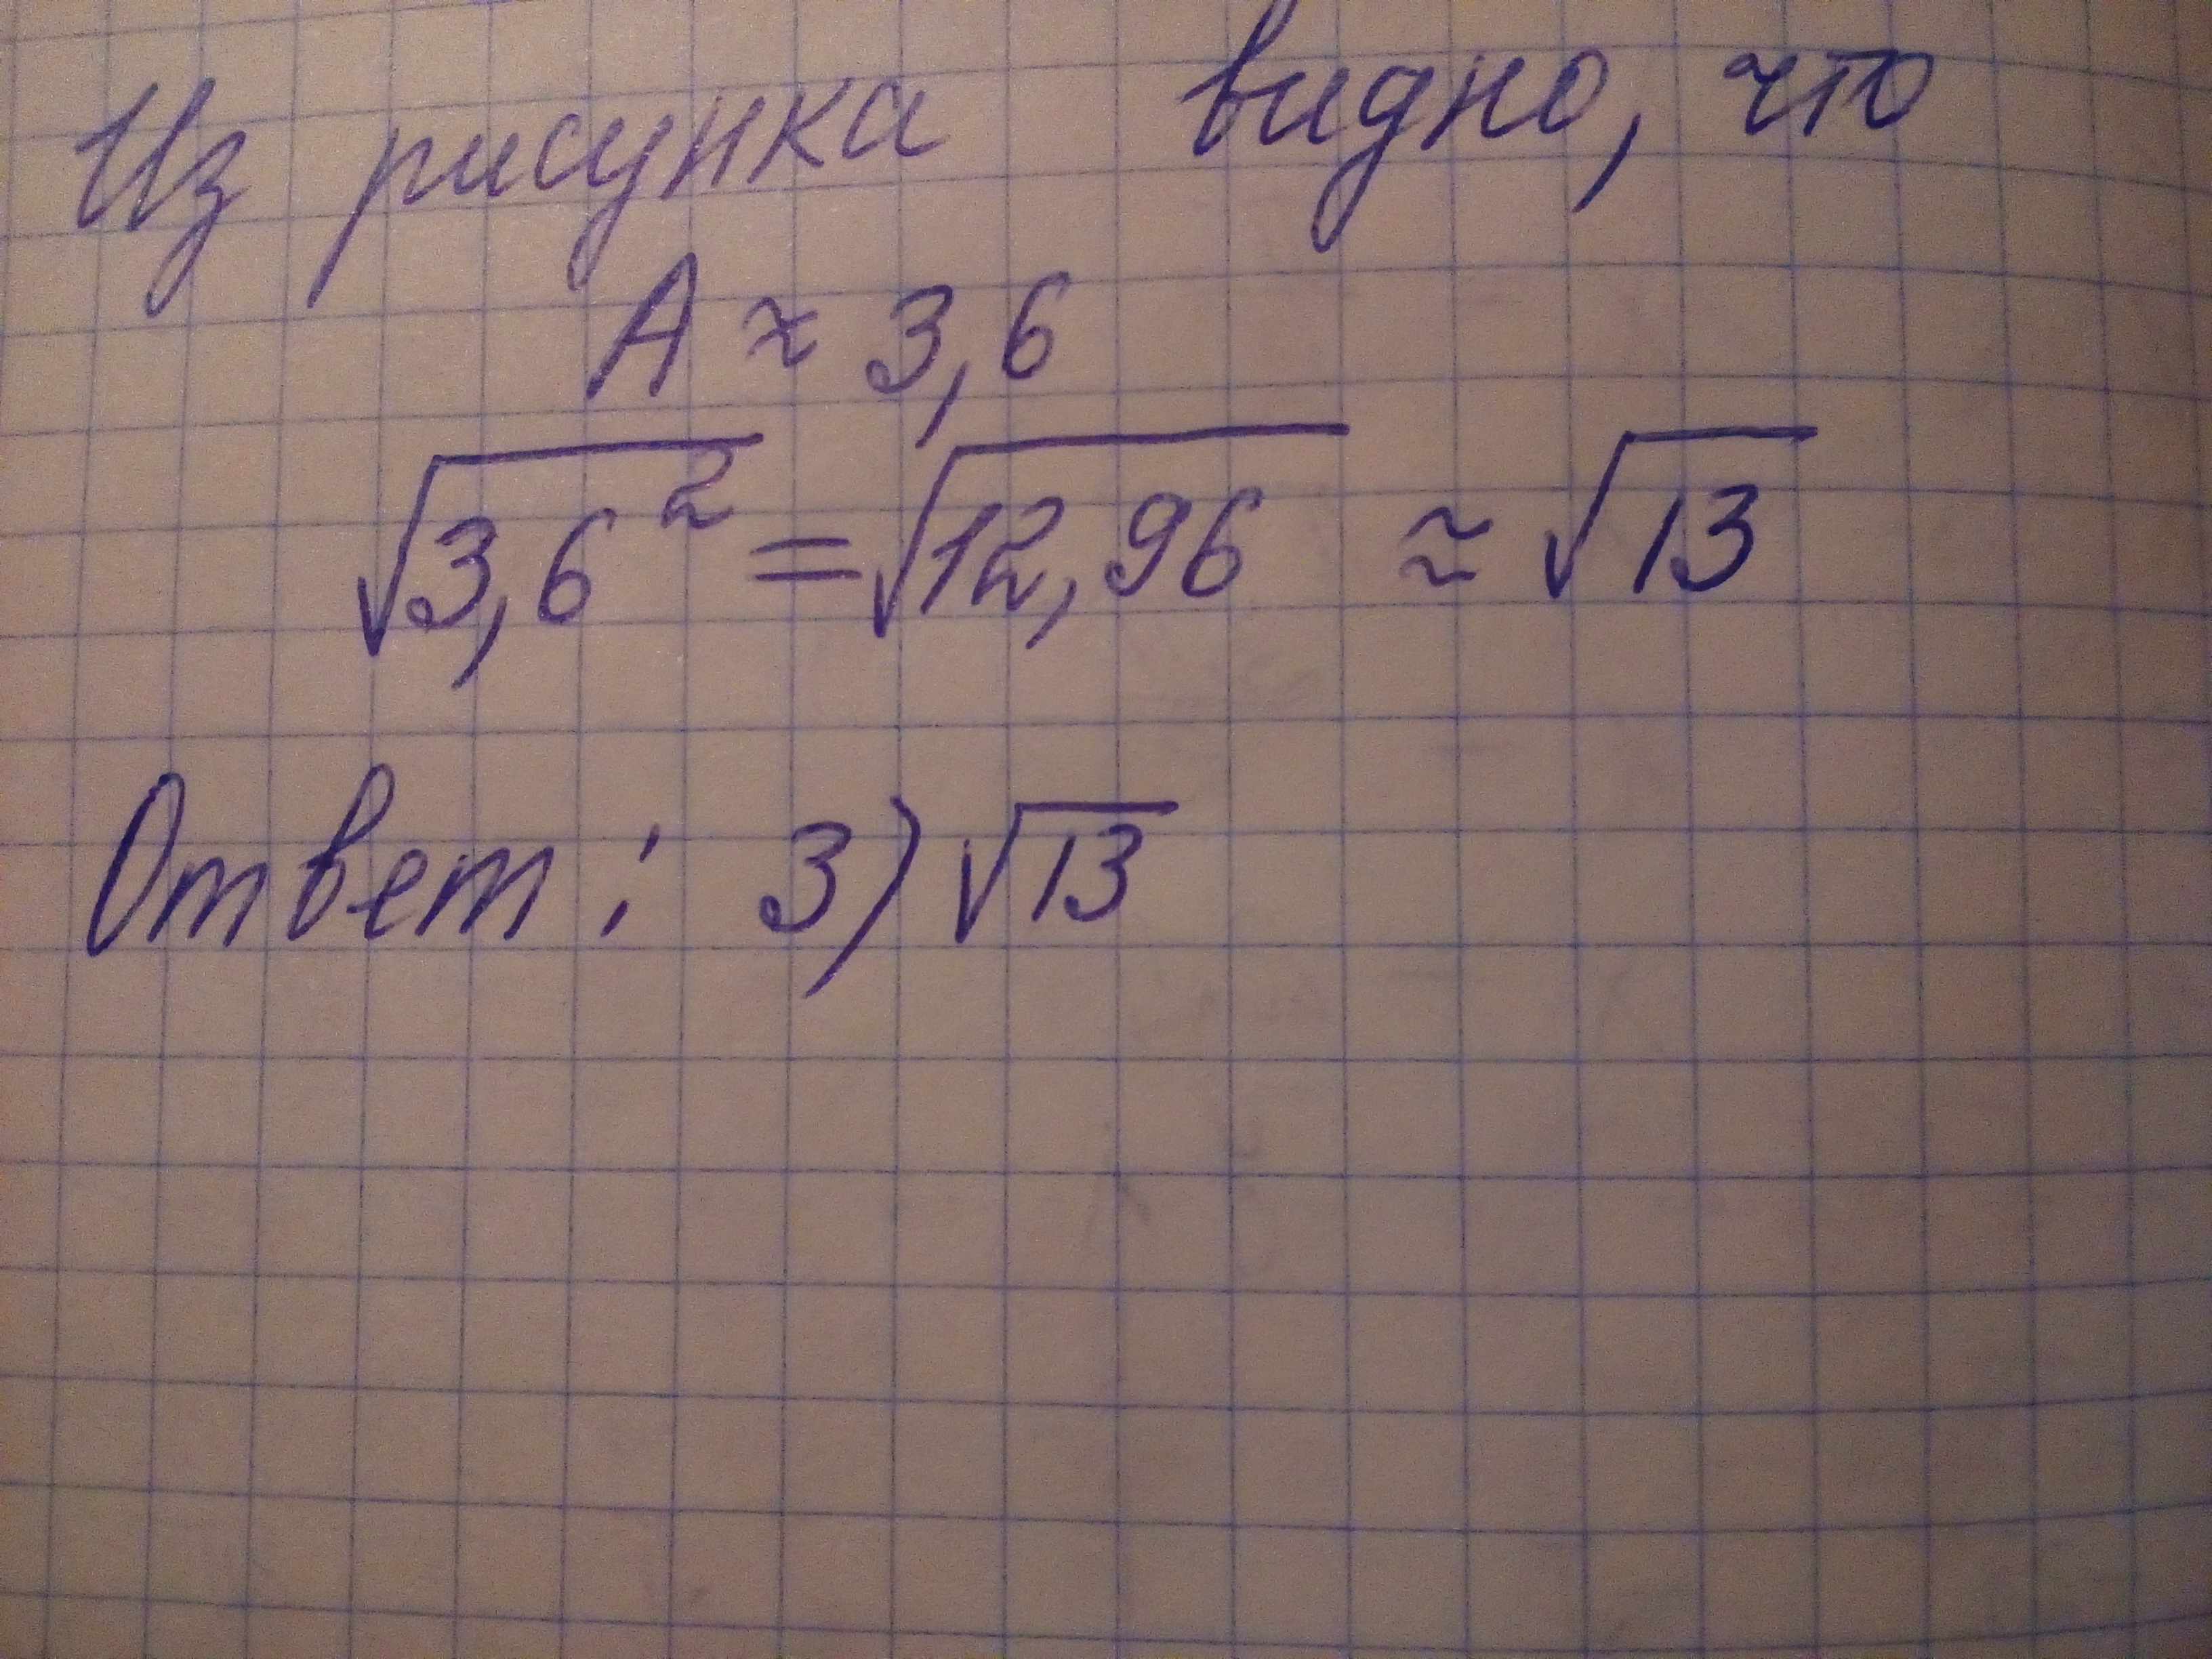 Из рисунка видно, что
А ≈ 3,6
√3,6² = √12,96 ≈ √13
Ответ: 3) √13